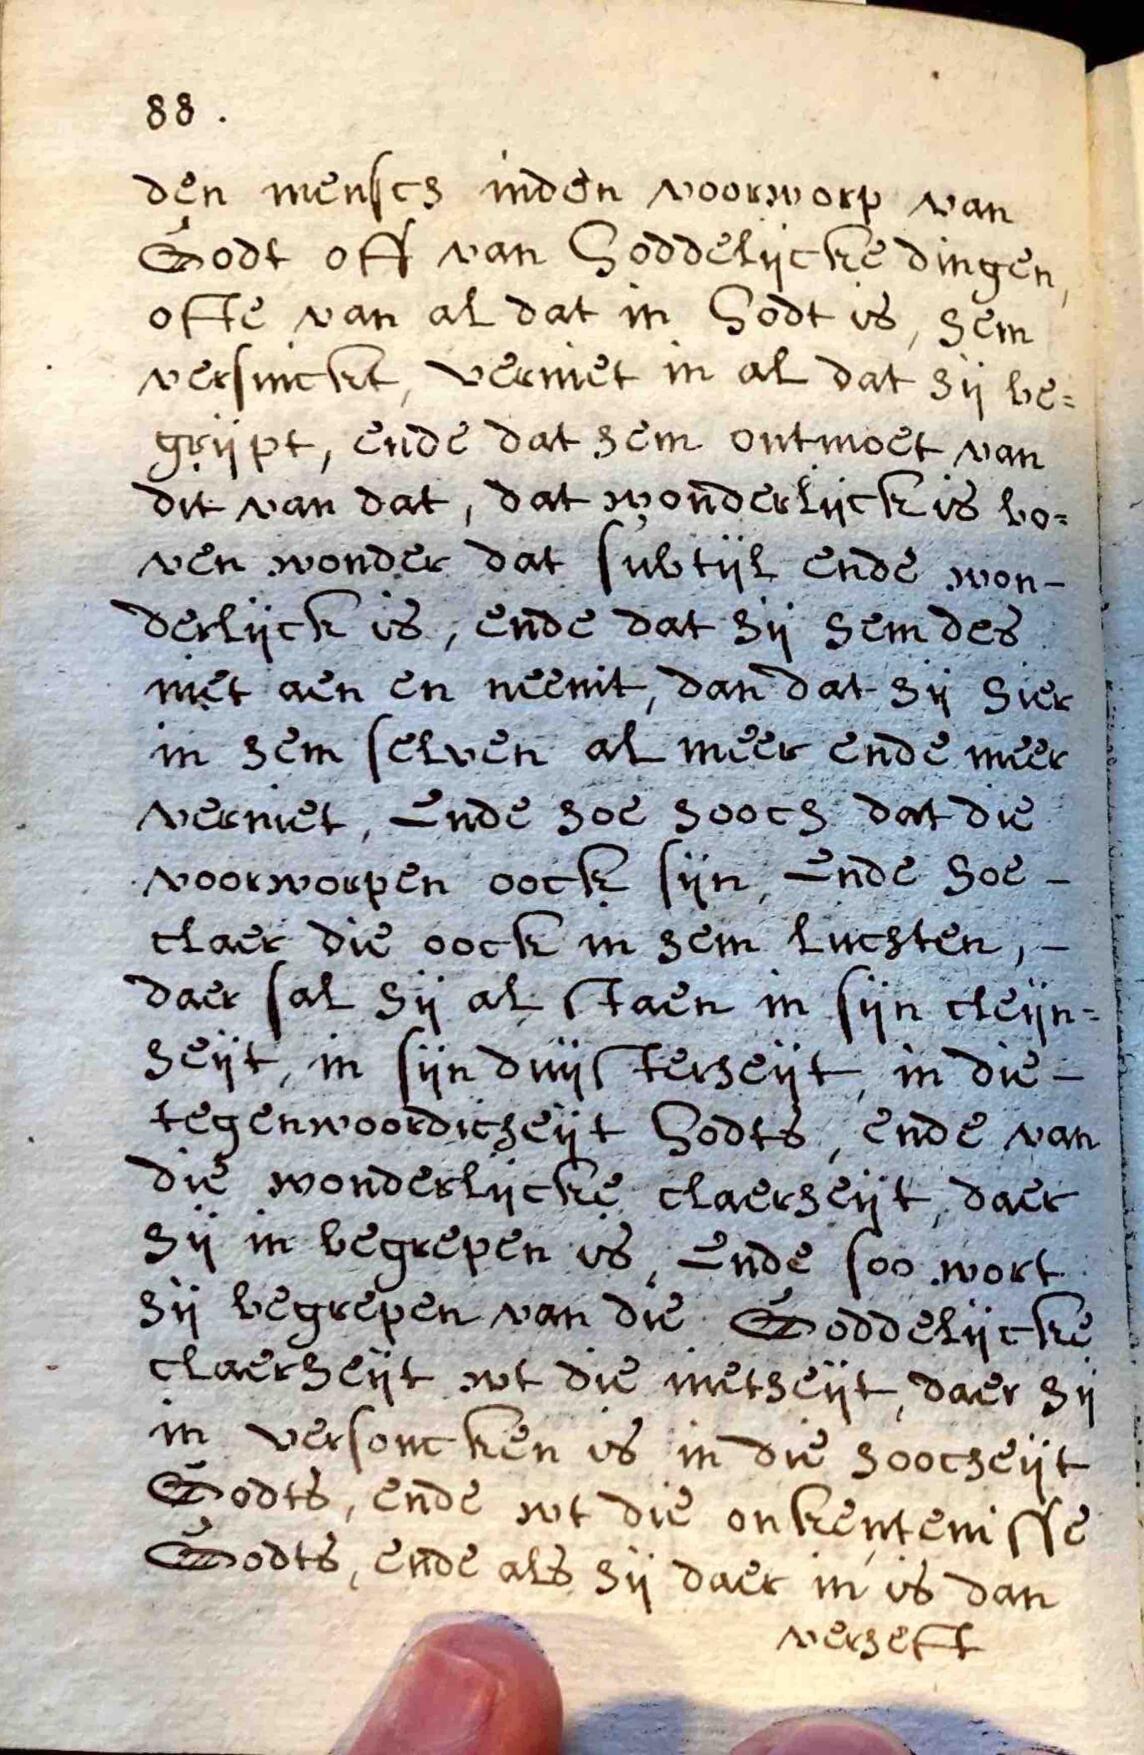 88.
den mensch inden voorworp van
Godt off van Goddelijcke dingen,
ofte van al dat in Godt is, hem
versinckt, verniet in al dat hij be=
grijpt, ende dat hem ontmoet van
dit van dat, dat wonderlijck is bo=
ven wonder dat subtijl ende won-
derlijck is, ende dat hij hem des
niet aen en neemt, dan dat hij hier
in hem selven al meer ende meer
verniet, Ende hoe hooch dat die
voorworpen oock sijn, Ende hoe -
claer die oock in hem luchten, -
daer sal hij al staen in sijn cleijn=
heijt, in sijn duijsterheijt, in die -
tegenwoordicheijt Godts, ende van
die wonderlijcke claerheijt, daer
hij in begrepen is, Ende soo wort
hij begrepen van die Goddelijcke
claerheijt wt die nietheijt, daer hij
in versoncken is in die hoocheijt
Godts, ende wt die onkentenisse
Godts, ende als hij daer in is dan
verheft